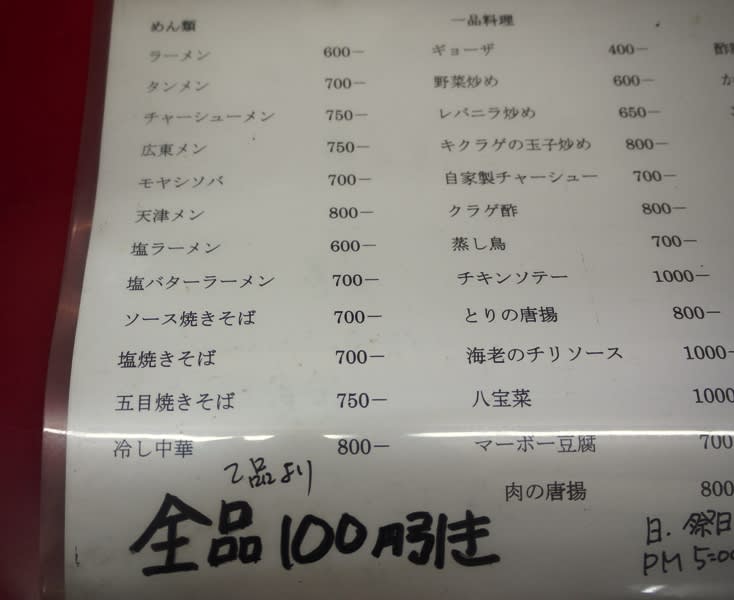 めん類
ラーメン 600-
タンメン 700-
チャーシューメン 750-
広東メン 750-
モヤシソバ 700-
天津メン 800-
塩ラーメン 600-
塩バターラーメン 700-
ソース焼きそば 700-
塩焼きそば 700-
五目焼きそば 750-
冷し中華 800-
一品料理
ギョーザ 400-
野菜炒め 600-
レバニラ炒め 650-
キクラゲの玉子炒め 800-
自家製チャーシュー 700-
クラゲ酢 800-
蒸し鳥 700-
チキンソテー 1000-
とりの唐揚 800-
海老のチリソース 1000-
八宝菜 1000
マーボー豆腐 700
肉の唐揚 800
酢
か
2品より
全品100円引き
日.祭日
PM 5:00